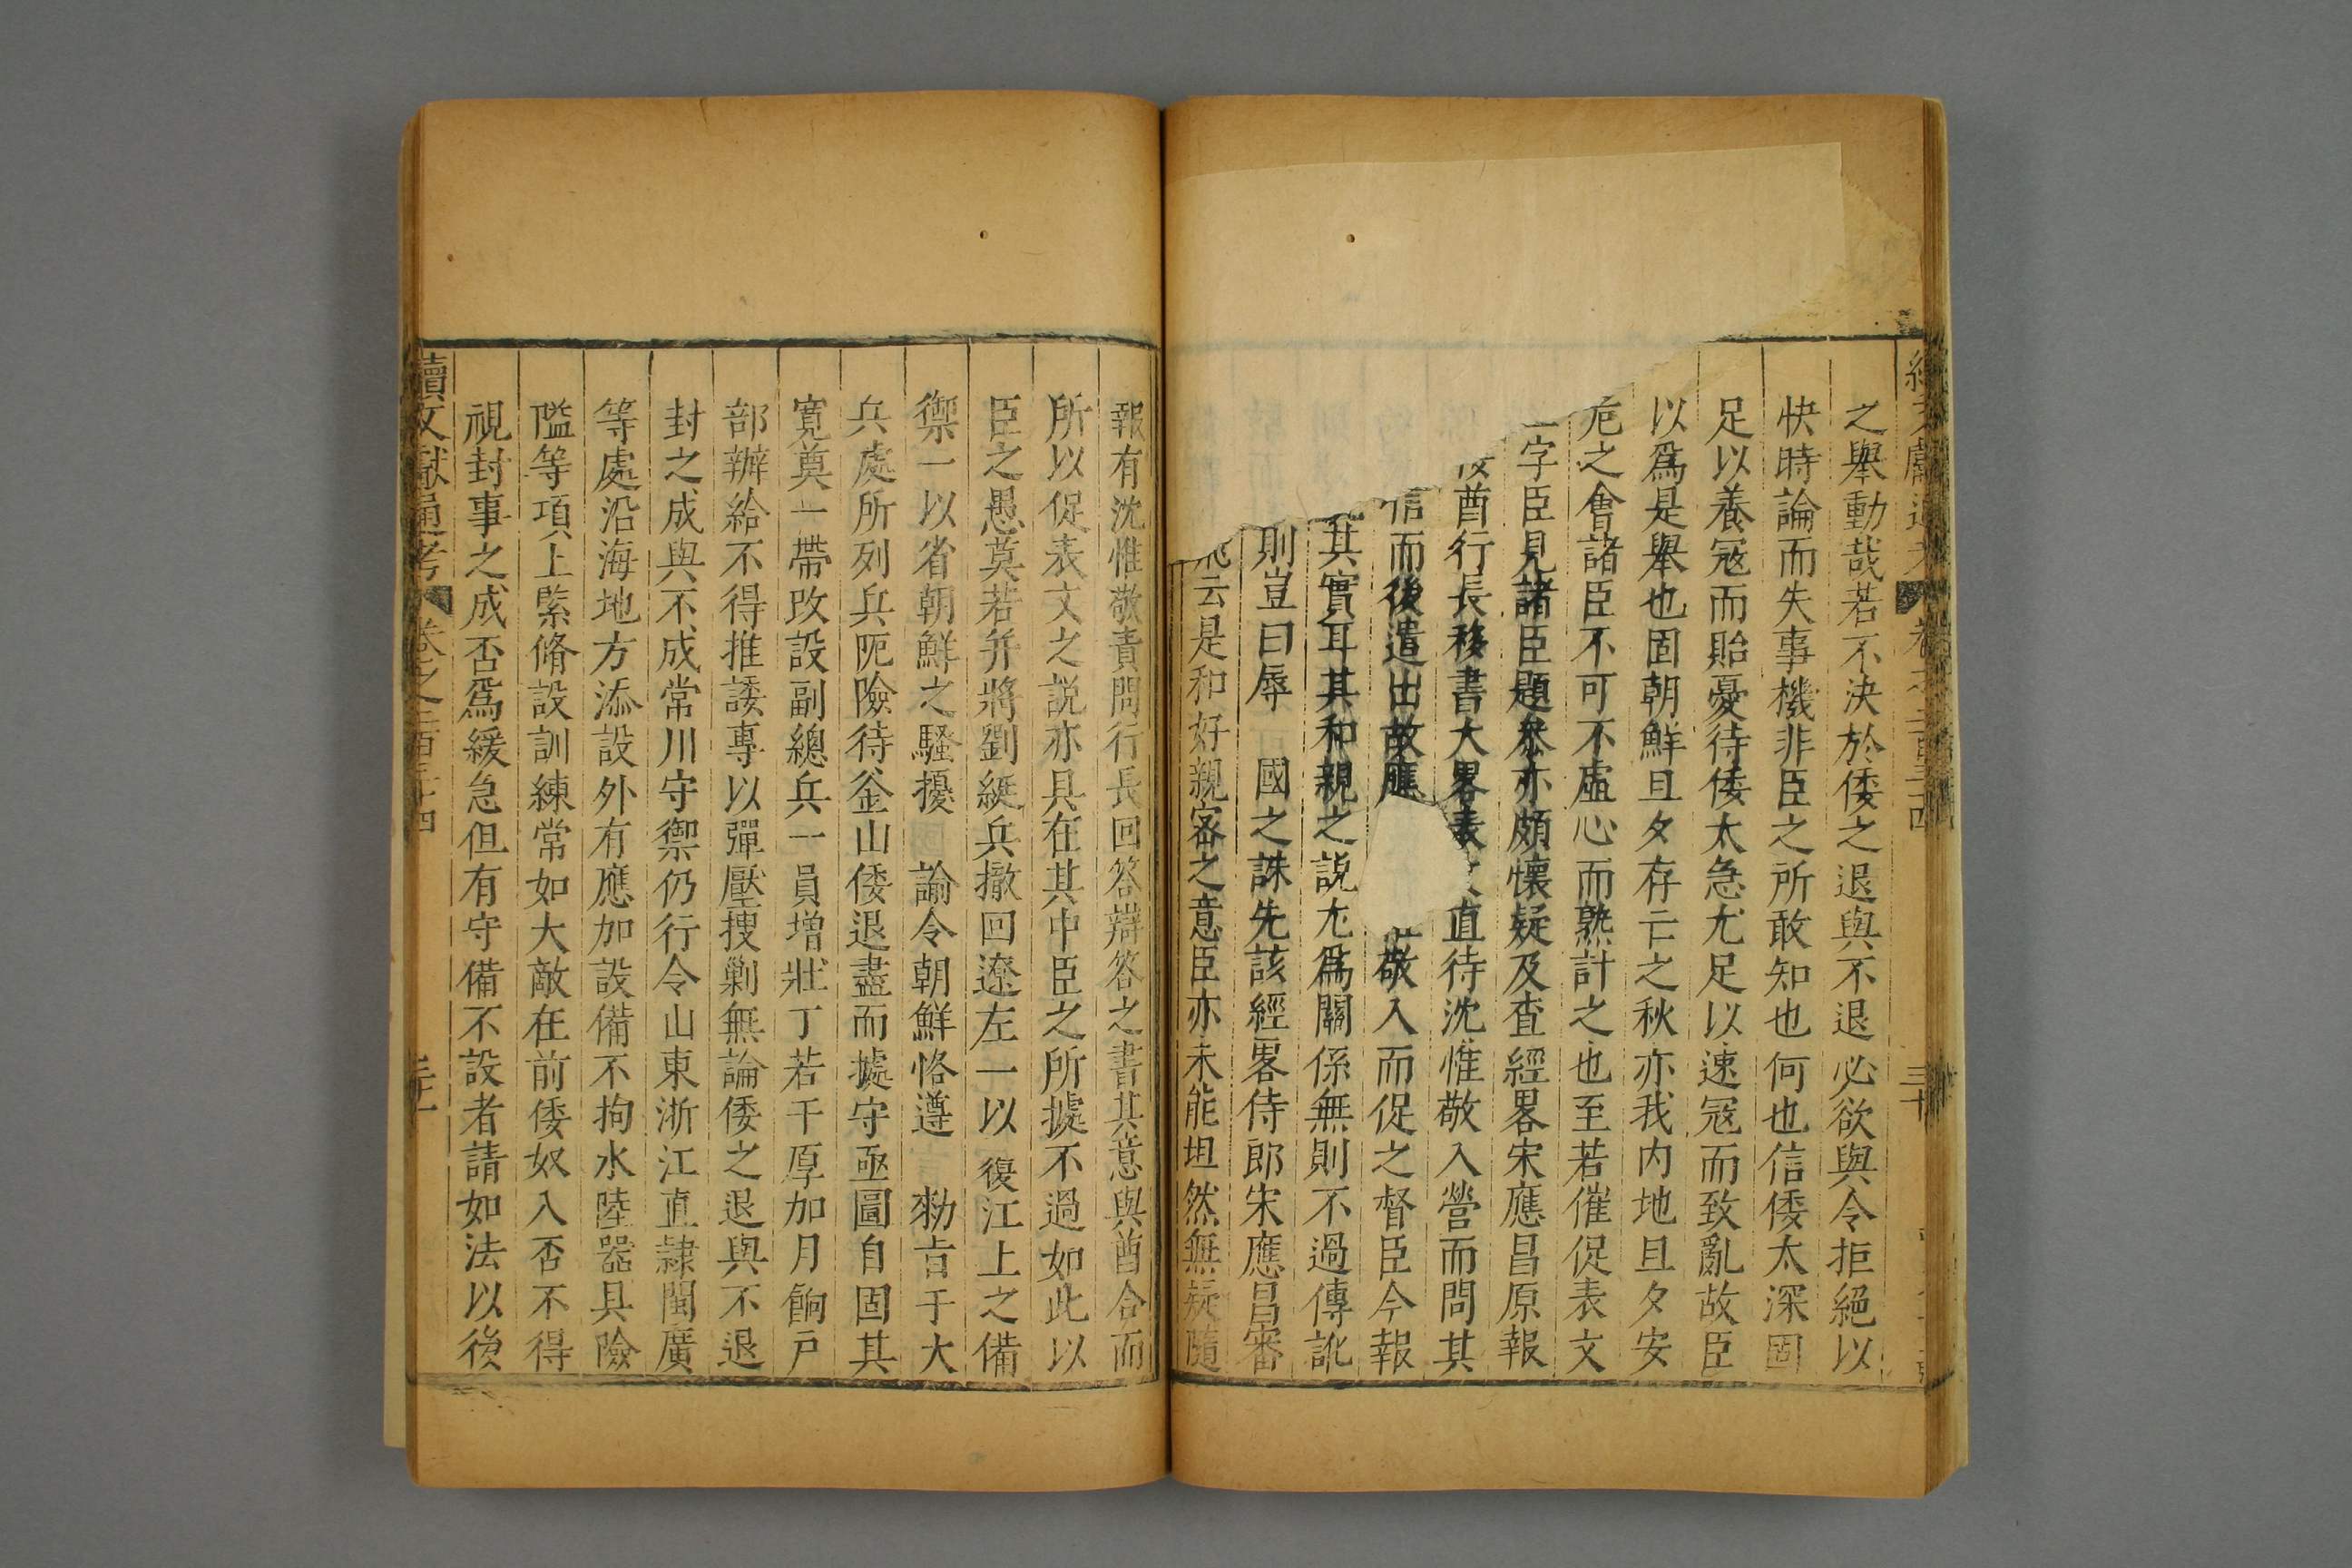 之舉動哉若不決於倭之退與不退必欲與令拒絕以
快時論而失事機非臣之所敢知也何也信倭太深固
足以養冦而貽憂待倭太急尤足以速冦而致亂故臣
以爲是舉也固朝鮮旦夕存亡之秋亦我内地旦夕安
危之會諸臣不可不虛心而熟計之也至若催促表文
字臣見諸臣題叅亦頗懷疑及查經畧宋應昌原報
酋行長移書大畧表文直待沈惟敬入營而問其
信而後遣出故應敬入而促之督臣今報
其實耳其和親之説尤爲關係無則不過傳訛
則豈曰辱國之誅先該經畧侍郎宋應昌審
云是和好親宻之意臣亦未能坦然無疑隨
報有沈惟敬責問行長回答辯答之書其意與酋合而
所以促表文之説亦具在其中臣之所據不過如此以
臣之愚莫若并將劉綎兵撤回遼左一以復江上之備
禦一以省朝鮮之騷擾諭令朝鮮恪遵勑旨于大
兵處所列兵阨險待釜山倭退盡而據守亟圖自固其
寛奠一帶改設副總兵一員增壯丁若干厚加月餉戸
部辦給不得推諉專以彈壓捜剿無論倭之退與不退
封之成與不成常川守禦仍行令山東浙江直隸閩廣
等處沿海地方添設外有應加設備不拘水陸器具險
隘等項上緊脩設訓練常如大敵在前倭奴入否不得
視封事之成否爲緩急但有守備不設者請如法以後
續文獻通考 卷之二百三十四